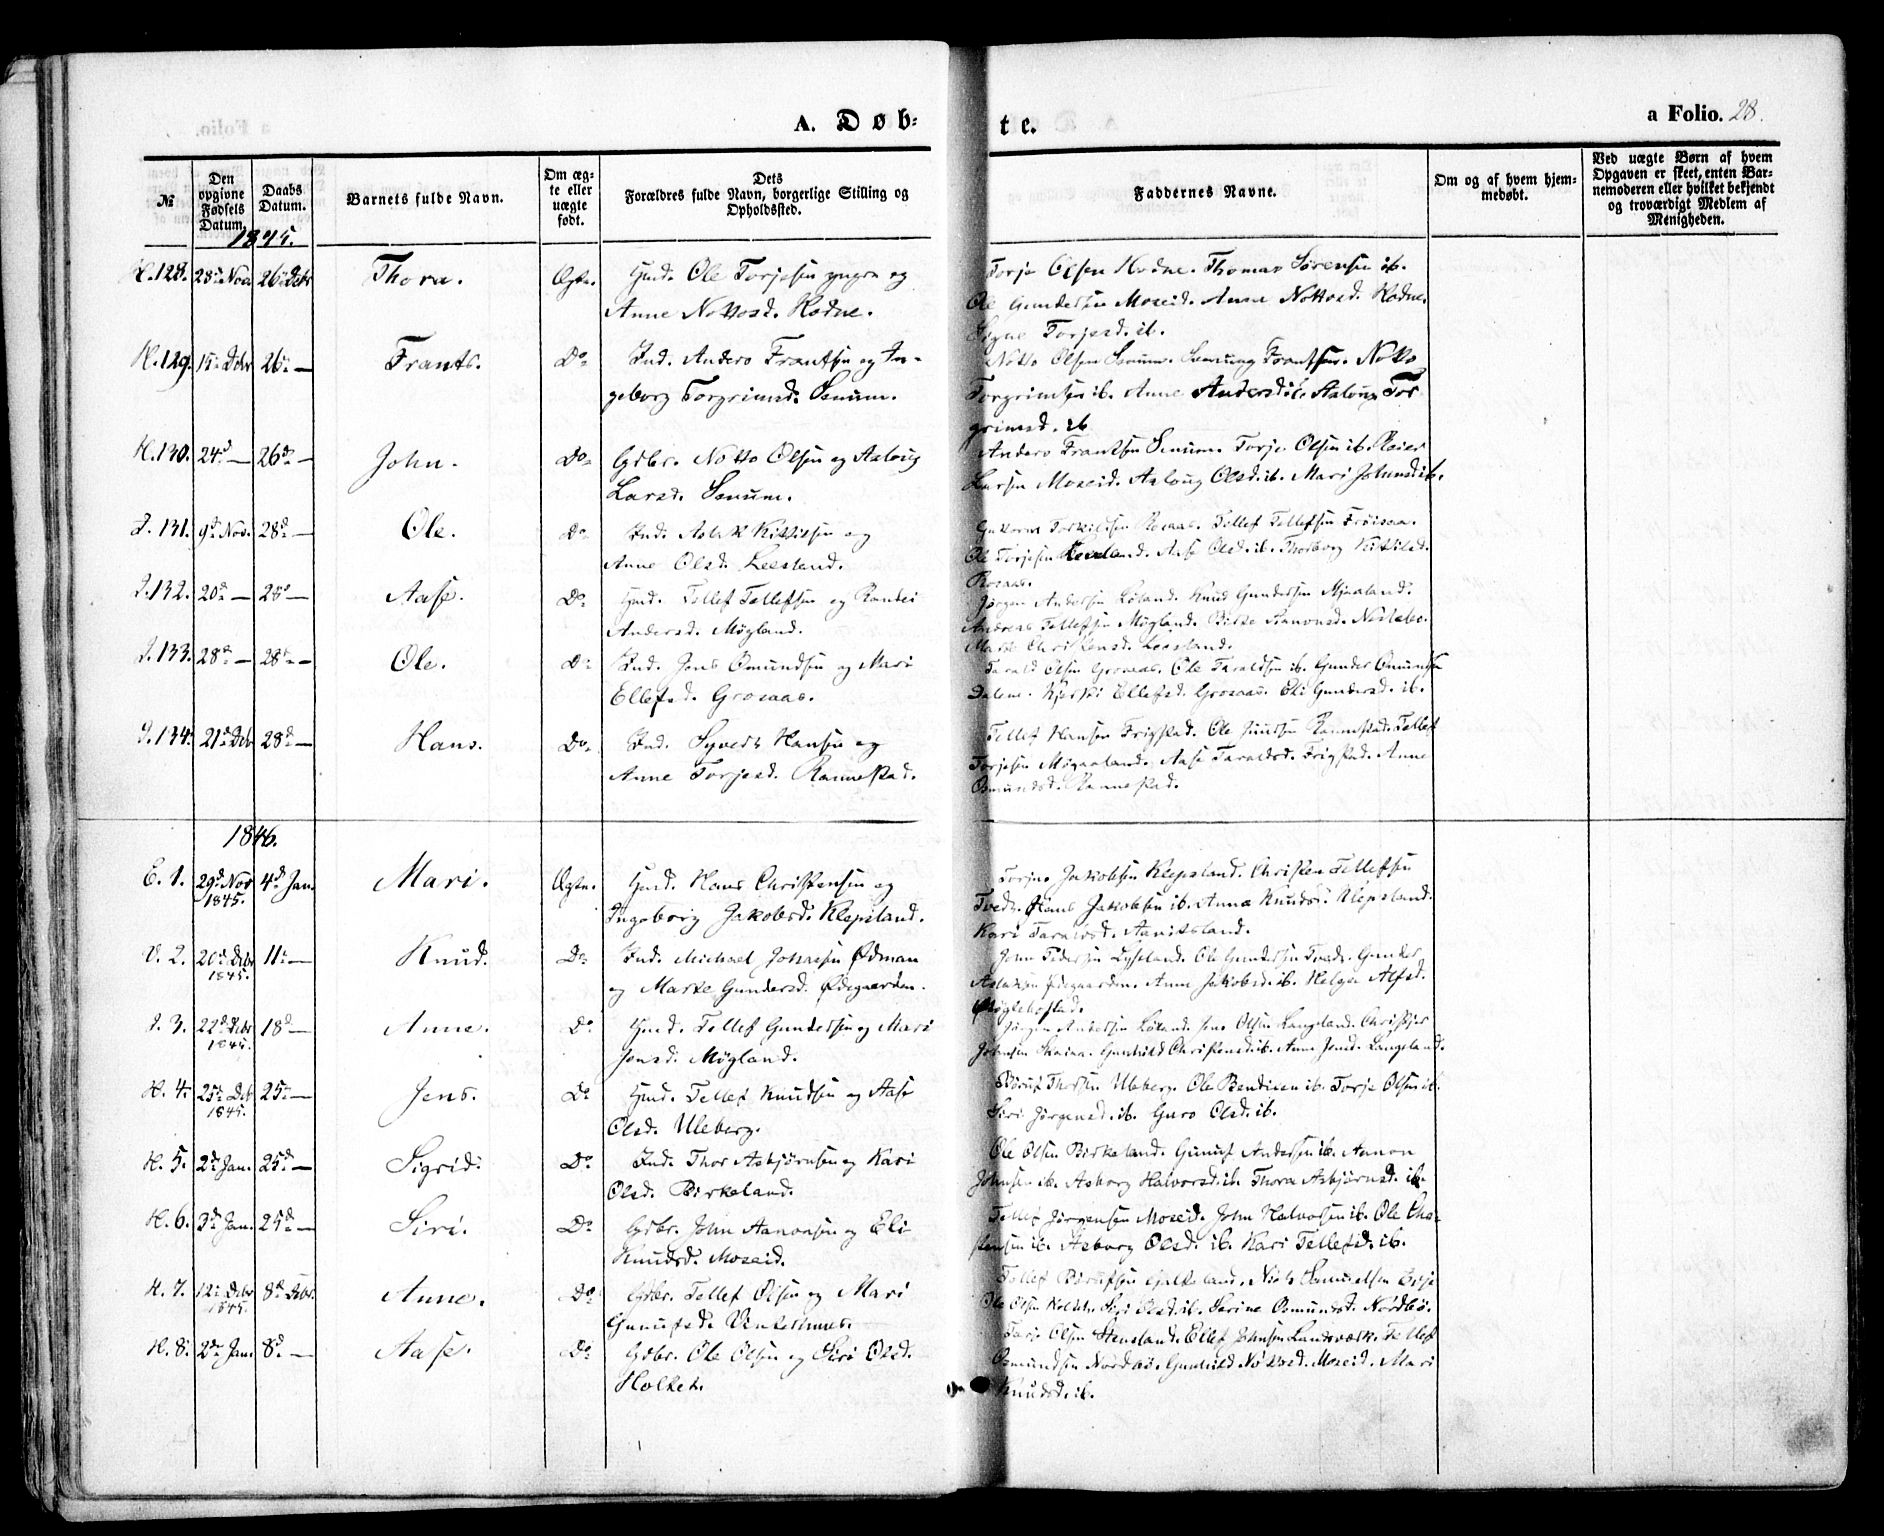 A. Døb-
te.
a Folio. 28.
№
Den opgivne Fødsels Datum.
Daabs Datum.
Barnets fulde Navn.
Om ægte eller uægte født.
Dets Forældres fulde Navn, borgerlige Stilling og Opholdssted.
Faddernes Navne.
Om og af hvem hjemmedøbt.
Ved uægte Børn af hvem Opgaven er skeet, enten Barnemoderen eller hvilket bekjendt og troværdigt Medlem af Menigheden.
1845.
H. 128. 28de Nov. 26de Debr Thora. Ægte. Gmd. Ole Torjesen yngre og
Anne Nottosd. Hodne.
Torje Olsen Hodne. Thomas Sørensen ib.
Ole Gundersen Moseid. Anne Nottosd. Hodne.
Torjesd. ib.
H. 129. 15de Debr 26de — Frants. Do Ind. Anders Frantsen og In-
geborg Torgrimsd. Senum.
Notto Olsen Senum. Frantsen. Notto
Torgrimsen ib. Anne Andersd ib. Asloug Tor
grimsd. ib
H. 130. 24d — 26de — John. Do Gdbr. Notto Olsen og Asloug
Larsd. Senum.
Anders Frantsen Senum. Torje Olsen ib. Reier
Larsen Moseid. Aslong Olsd. ib. Mari Johnsd ib.
I. 131. 9de Nov. 28d — Ole. Do Ind. Aslak Kittilsen og
Anne Olsd. Leesland.
Guttorm Torkildsen Rosaas. Tellef Tellefsen Frøisaa.
Ole Torjesen Leesland. Aase Olsd. ib. Thorborg Kittilsd.
Rosaas.
I. 132. 20d — 28d — Aase. Do Gmd. Tellef Tellefsen og Randei
Andersd. Møgland.
Jørgen Andersen Løland. Knud Gundersen Mjaaland.
Andreas Tellefsen Møgland. Birte Simonsd.
Marte Christensd. Leesland.
I. 133. 28d — 28de — Ole. Do Ind. Jens Omundsen og Mari
Ellefsd. Grosaas.
Tarald Olsen Grosaas. Ole Taraldsen ib. Gunder Omundsen
Dalene. Ellefsd. Grosaas. Eli Gundersd. ib.
I. 134. 21de Debr 28d — Hans. Do Ind. Syvert Hansen og
Anne Torjesd. Rannestad.
Tellef Hansen Frigstad. Ole Rannestad. Tellef
Torjesen Møgaaland. Aase Taraldsd. Frigstad. Anne
Osmundsd. Rannestad.
1846.
E. 1. 29d Nov 1845. 4d Jan. Mari. Ægte. Gmd. Hans Christensen og
Ingeborg Jakobsd. Klepsland.
Torjus Jakobsen Klepsland. Christen Tellefsen
Tvedt. Hans Jakobsen ib. Anna Knudsd. Klepsland.
Kari Taraldsd. Aavitsland.
V. 2. 20d Debr 1845. 11te — Knud. Do Ind. Michael Johnsen Ødman
og Marte Gundersd. Ødegaarden.
John Pedersen Lysland. Ole Gundersen Tvedt. Gunder
Aslaksen Ødegaarden. Anne Jakobsd. ib. Helge Alfsd.
Møglebostad.
I. 3. 22d Debr 1845. 18d — Anne. Do Gmd. Tellef Gundersen og Mari
Jensd. Møgland.
Jørgen Andersen Løland. Jens Olsen Langeland. Christjer
Johnsen Skaiaa. Gunhild Christensd. ib. Anne Jensd. Langeland.
H. 4. 25de Deb 1845. 25de — Jens. Do Gmd. Tellef Knudsen og Aase
Olsd. Uleberg.
Børuf Thorsen Uleberg. Ole Bendixen ib. Torje Olsen ib.
Siri Jørgensd. ib. Guro Olsd. ib.
H. 5. 2de Jan. 25d — Sigrid. Do Ind. Thor Asbjørnsen og Kari
Olsd. Birkeland.
Ole Olsen Birkeland. Gunuf Andersen ib. Aanon
Johnsen ib. Asborg Halvorsd. ib. Thora Asbjørnsd. ib.
H. 6. 3de Jan. 25d — Siri. Do Gdbr. John Aanonsen og Eli
Knudsd. Moseid.
Tellef Jørgensen Moseid. John Halvorsen ib. Ole Chri-
stensen ib. Asborg Olsd. ib. Kari Tellefsd. ib.
H. 7. 12te Debr 1845. 8d Febr. Anne. Do Gdbr. Tellef Olsen og Mari
Gunufsd. Vintershuus.
Tellef Børufsen Niels Samuelsen
Ole Olsen Holtet. Siri Olsd. ib. Serine Osmundsd. Nordbø.
H. 8. 2de Jan. 8d — Aase. Do Gdbr. Ole Olsen og Siri Olsd.
Holtet.
Olsen Stensland. Ellef Johnsen Landsværk. Tellef
Osmundsen Nordbø. Gunhild Nottosd. Moseid. Mari
Knudsd. ib.